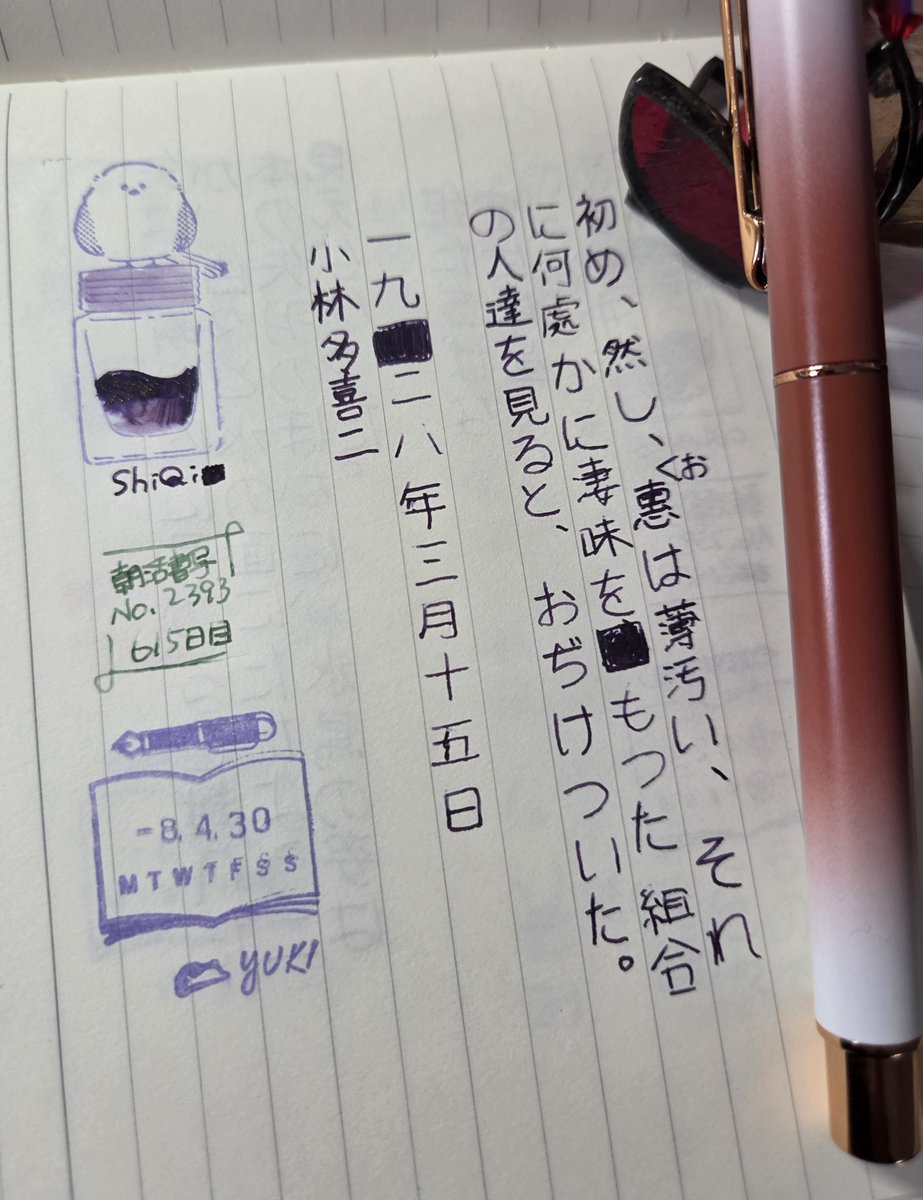 初め、然し、お惠は薄汚い、それ
に何處かに凄味をもつた組合
の人達を見ると、おぢけついた。
一九二八年三月十五日
小林多喜二
ShiQi
朝活書写
No. 2393
615日目
-8.4.30
M T W T F S S
YUKI